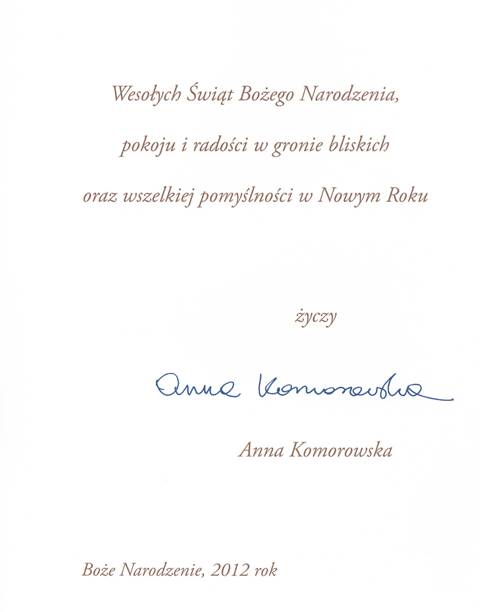 Wesołych Świąt Bożego Narodzenia,
pokoju i radości w gronie bliskich
oraz wszelkiej pomyślności w Nowym Roku
życzy
Anna Komorowska
Anna Komorowska
Boże Narodzenie, 2012 rok